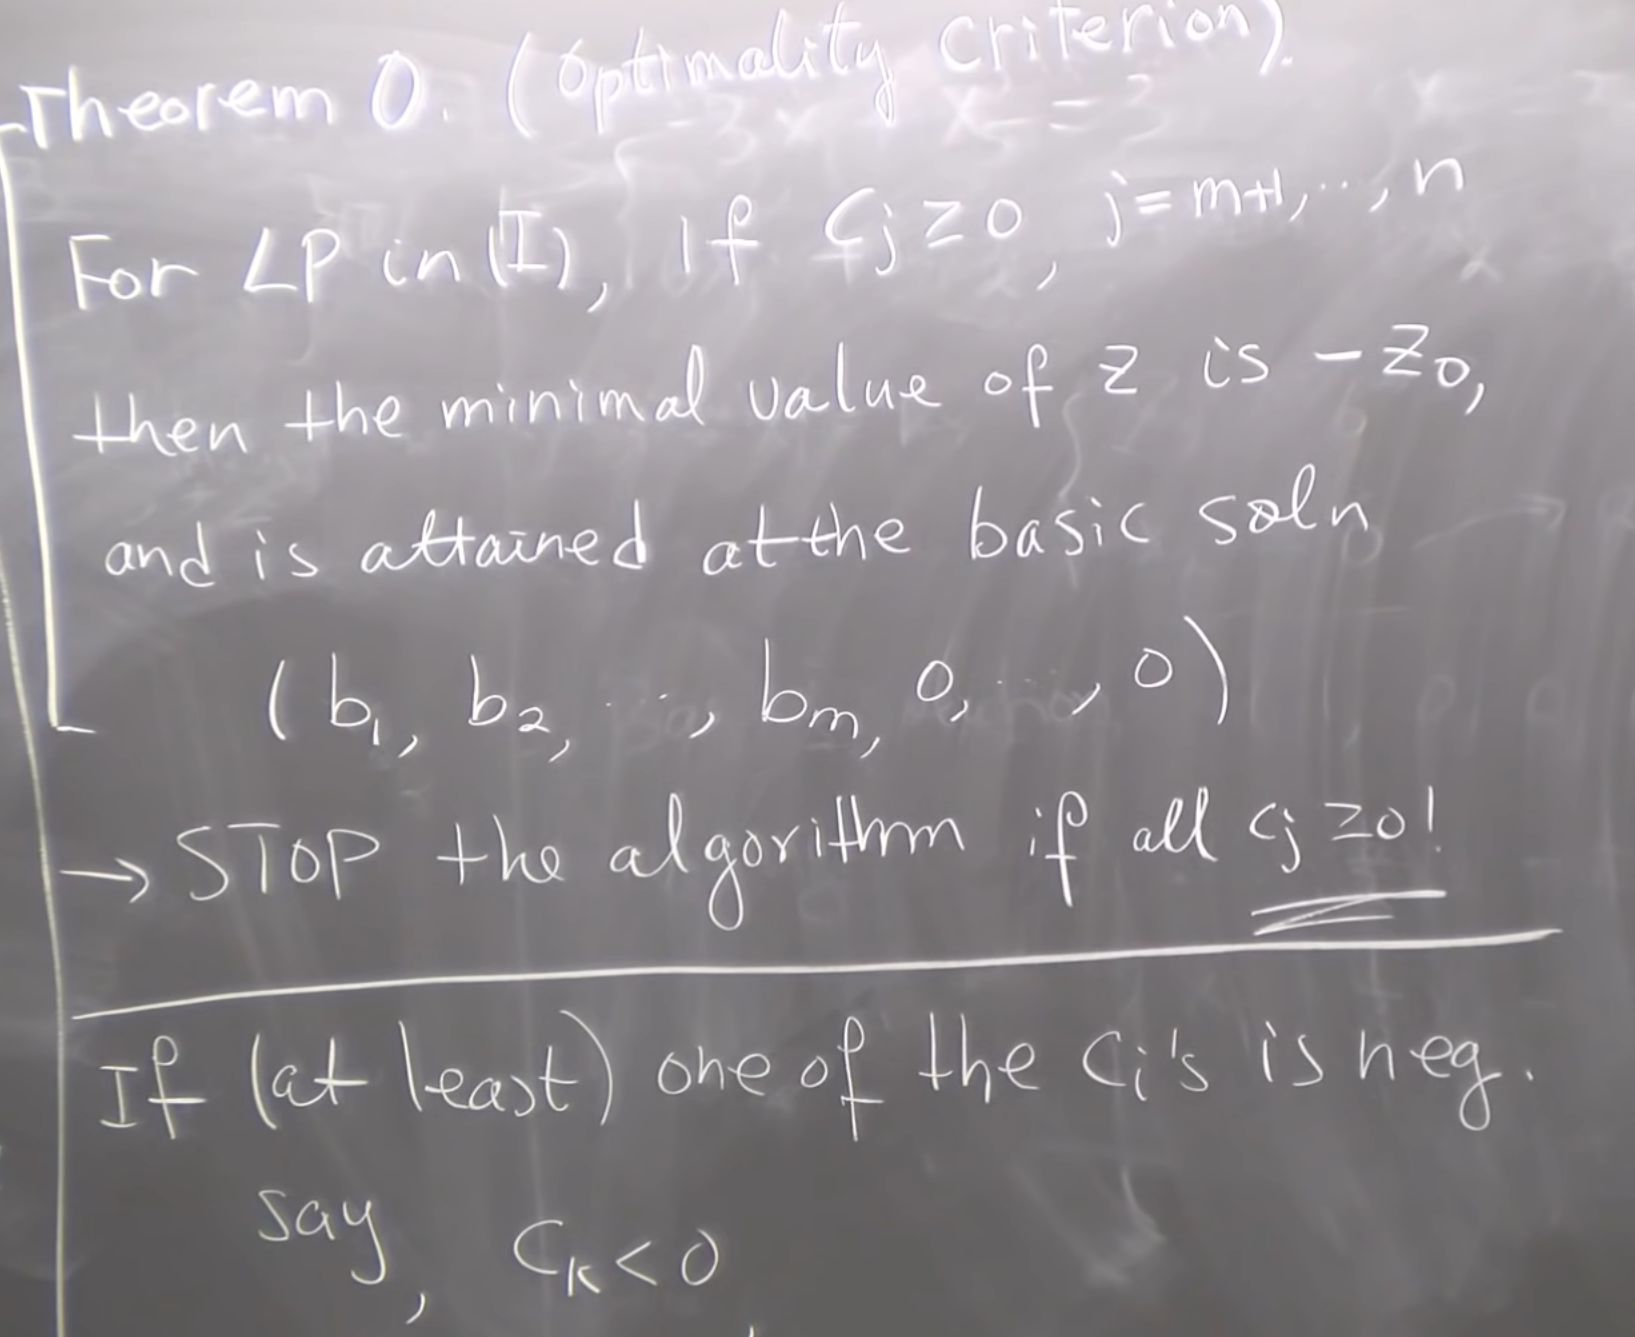 Theorem 0. (Optimality Criterion).
For LP in (I), if cj ≥ 0, j = m+1, ..., n
then the minimal value of z is -z₀,
and is attained at the basic soln
(b₁, b₂, ..., bm, 0, ..., 0)
→ STOP the algorithm if all cj ≥ 0!
If (at least) one of the ci's is neg.
say, cₖ < 0